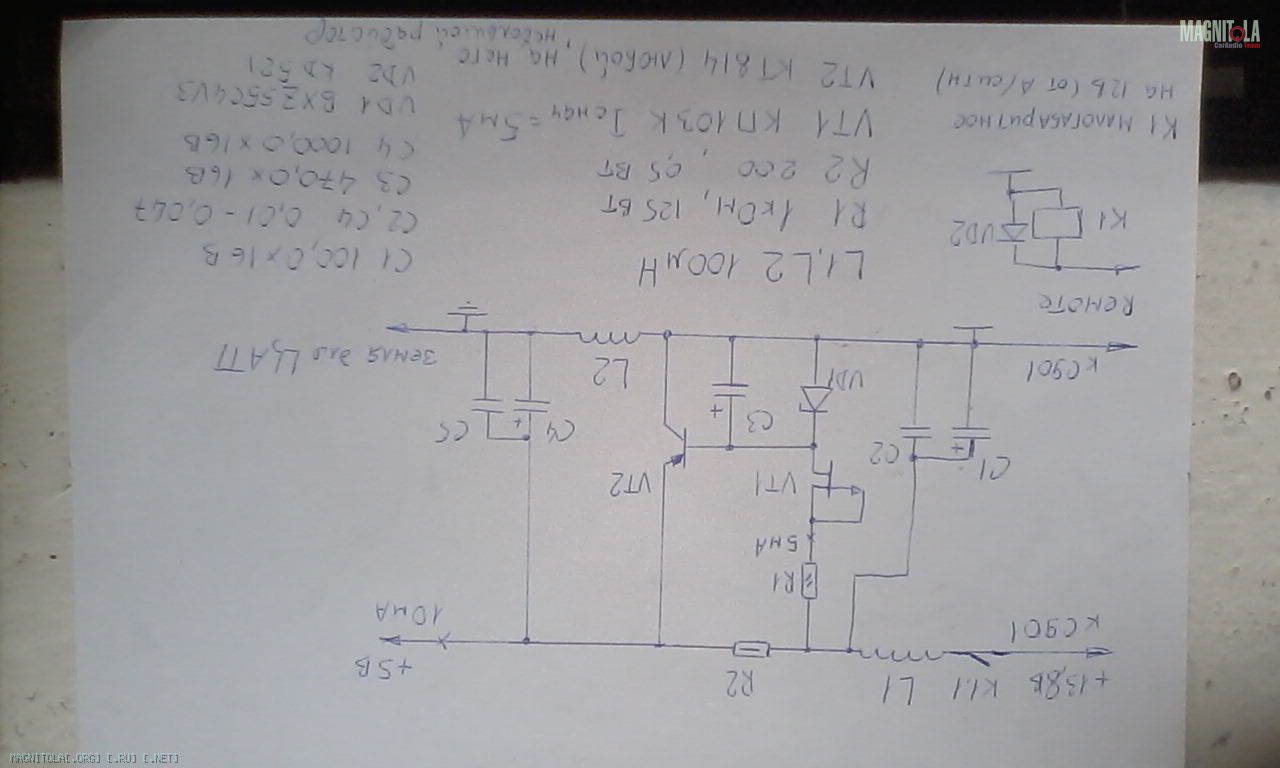 +13,8В К1.1 L1 R2 +5В
к С901 10мА
R1
5мА
VT1 VT2
C1 C2 C3 C4 C5
VD1 L2
к С901 земля для ЦАП
REMOTE
К1 VD2
К1 малогабаритное
на 12В (от А/сигн)
L1, L2 100мкН
R1 1кОм, 125 ВТ
R2 200, 0,5 ВТ
VT1 КП103К Iснач=5мА
VT2 КТ814 (любой), на него
небольшой радиатор
C1 100,0×16В
C2, C4 0,01-0,047
C3 470,0×16В
C4 1000,0×16В
VD1 BXZ55C4V3
VD2 КД521
MAGNITOLA
CarAudio Team
MAGNITOLA[.ORG] [.RU] [.NET]